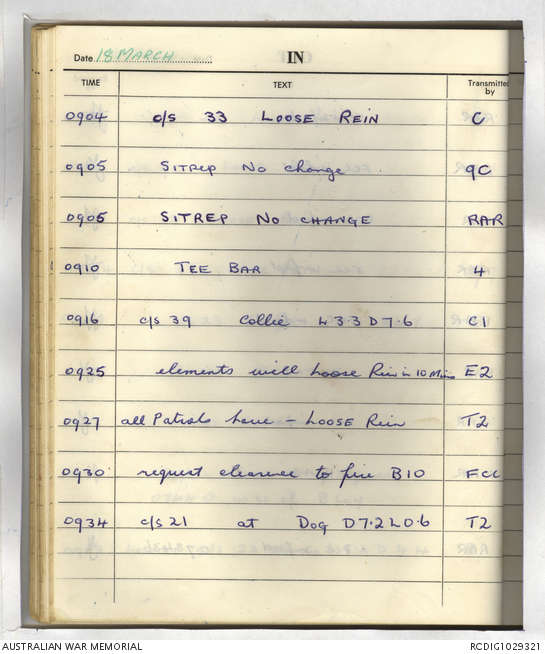 Date 18 MARCH IN
TIME TEXT Transmitted by
0904 o/s 33 LOOSE REIN C
0905 SITREP No change 9C
0905 SITREP NO CHANGE RAR
0910 TEE BAR 4
0916 c/s 39 Collie L3.3 D7.6 C1
0925 elements will Loose Rein in 10 Mins E2
0927 all Patrols have - LOOSE Rein T2
0930 request clearence to fire B10 FCC
0934 c/s 21 at Dog D7.2 L0.6 T2
RAR
AUSTRALIAN WAR MEMORIAL RCDIG1029321